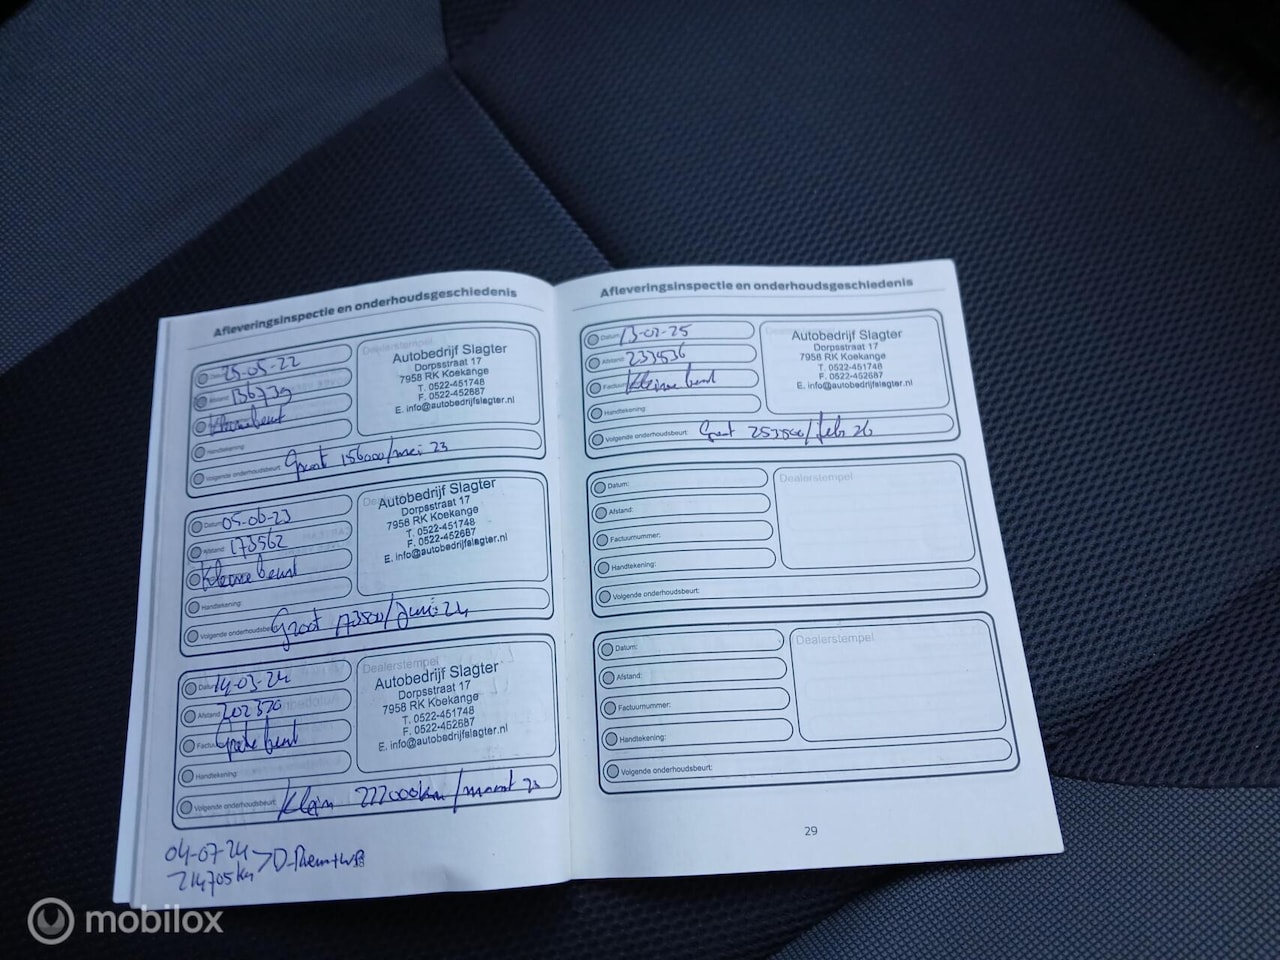 Afleveringsinspectie en onderhoudsgeschiedenis
25-05-22
136739
Kleine beurt
Handtekening:
Volgende onderhoudsbeurt: Groot 156000/mei 23
Autobedrijf Slagter
Dorpsstraat 17
7958 RK Koekange
T. 0522-451748
F. 0522-452687
E. info@autobedrijfslagter.nl
Datum: 05-06-23
Afstand: 173562
Kleine beurt
Handtekening:
Volgende onderhoudsbeurt: Groot /Juni 24
Autobedrijf Slagter
Dorpsstraat 17
7958 RK Koekange
T. 0522-451748
F. 0522-452687
E. info@autobedrijfslagter.nl
Datum: 14-03-24
Afstand: 202370
Grote beurt
Handtekening:
Volgende onderhoudsbeurt: Klein 222000km/maart
Dealerstempel
Autobedrijf Slagter
Dorpsstraat 17
7958 RK Koekange
T. 0522-451748
F. 0522-452687
E. info@autobedrijfslagter.nl
04-07-24
214705km
Afleveringsinspectie en onderhoudsgeschiedenis
Datum: 13-02-25
Afstand: 233536
Kleine beurt
Handtekening:
Volgende onderhoudsbeurt: Groot 253500/feb 26
Autobedrijf Slagter
Dorpsstraat 17
7958 RK Koekange
T. 0522-451748
F. 0522-452687
E. info@autobedrijfslagter.nl
Datum:
Afstand:
Factuurnummer:
Handtekening:
Volgende onderhoudsbeurt:
Dealerstempel
Datum:
Afstand:
Factuurnummer:
Handtekening:
Volgende onderhoudsbeurt:
Dealerstempel
29
mobilox